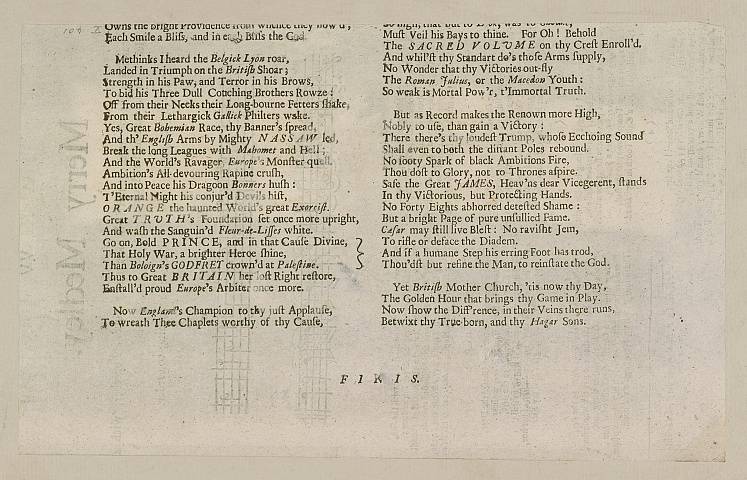 Owns the bright Providence from whence they flow'd,
Each Smile a Bliſs, and in each Bliſs the God.
Methinks I heard the Belgick Lyon roar,
Landed in Triumph on the Britiſh Shoar;
Strength in his Paw, and Terror in his Brows,
To bid his Three Dull Couching Brothers Rowze:
Off from their Necks their Long-bourne Fetters ſhake,
From their Lethargick Gallick Philters wake.
Yes, Great Bohemian Race, thy Banner's ſpread,
And th' Engliſh Arms by Mighty NASSAW led,
Break the long Leagues with Mahomet and Hell;
And the World's Ravager, Europe's Monſter quell.
Ambition's All-devouring Rapine cruſh,
And into Peace his Dragoon Bonners huſh:
T'Eternal Night his conjur'd Devils hiſt,
ORANGE the haunted World's great Exorciſt.
Great TRUTH's Foundation ſet once more upright,
And waſh the Sanguin'd Fleur-de-Liſſes white.
Go on, Bold PRINCE, and in that Cauſe Divine,
That Holy War, a brighter Heroe ſhine,
Than Boloign's GODFRET crown'd at Paleſtine.
Thus to Great BRITAIN her loſt Right reſtore,
Enſtall'd proud Europe's Arbiter once more.
Now England's Champion to thy juſt Applauſe,
To wreath Thee Chaplets worthy of thy Cauſe,
Muſt Veil his Bays to thine. For Oh! Behold
The SACRED VOLUME on thy Creſt Enroll'd.
And whil'ſt thy Standart do's thoſe Arms ſupply,
No Wonder that thy Victories out-fly
The Roman Julius, or the Macedon Youth:
So weak is Mortal Pow'r, t'Immortal Truth.
But as Record makes the Renown more High,
Nobly to uſe, than gain a Victory:
There there's thy loudeſt Trump, whoſe Ecchoing Sound
Shall even to both the diſtant Poles rebound.
No ſooty Spark of black Ambitions Fire,
Thou doſt to Glory, not to Thrones aſpire.
Safe the Great JAMES, Heav'ns dear Vicegerent, ſtands
In thy Victorious, but Protecting Hands.
No Forty Eights abhorred deteſted Shame:
But a bright Page of pure unſullied Fame.
Cæſar may ſtill live Bleſt: No raviſht Jem,
To rifle or deface the Diadem.
And if a humane Step his erring Foot has trod,
Thou'dſt but refine the Man, to reinſtate the God.
Yet Britiſh Mother Church, 'tis now thy Day,
The Golden Hour that brings thy Game in Play.
Now ſhow the Diff'rence, in their Veins there runs,
Betwixt thy True-born, and thy Hagar Sons.
FINIS.